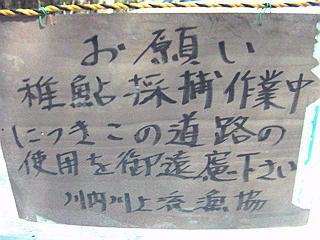 お願い
稚鮎採捕作業中
につきこの道路の
使用を御遠慮下さい
川内川上流漁協